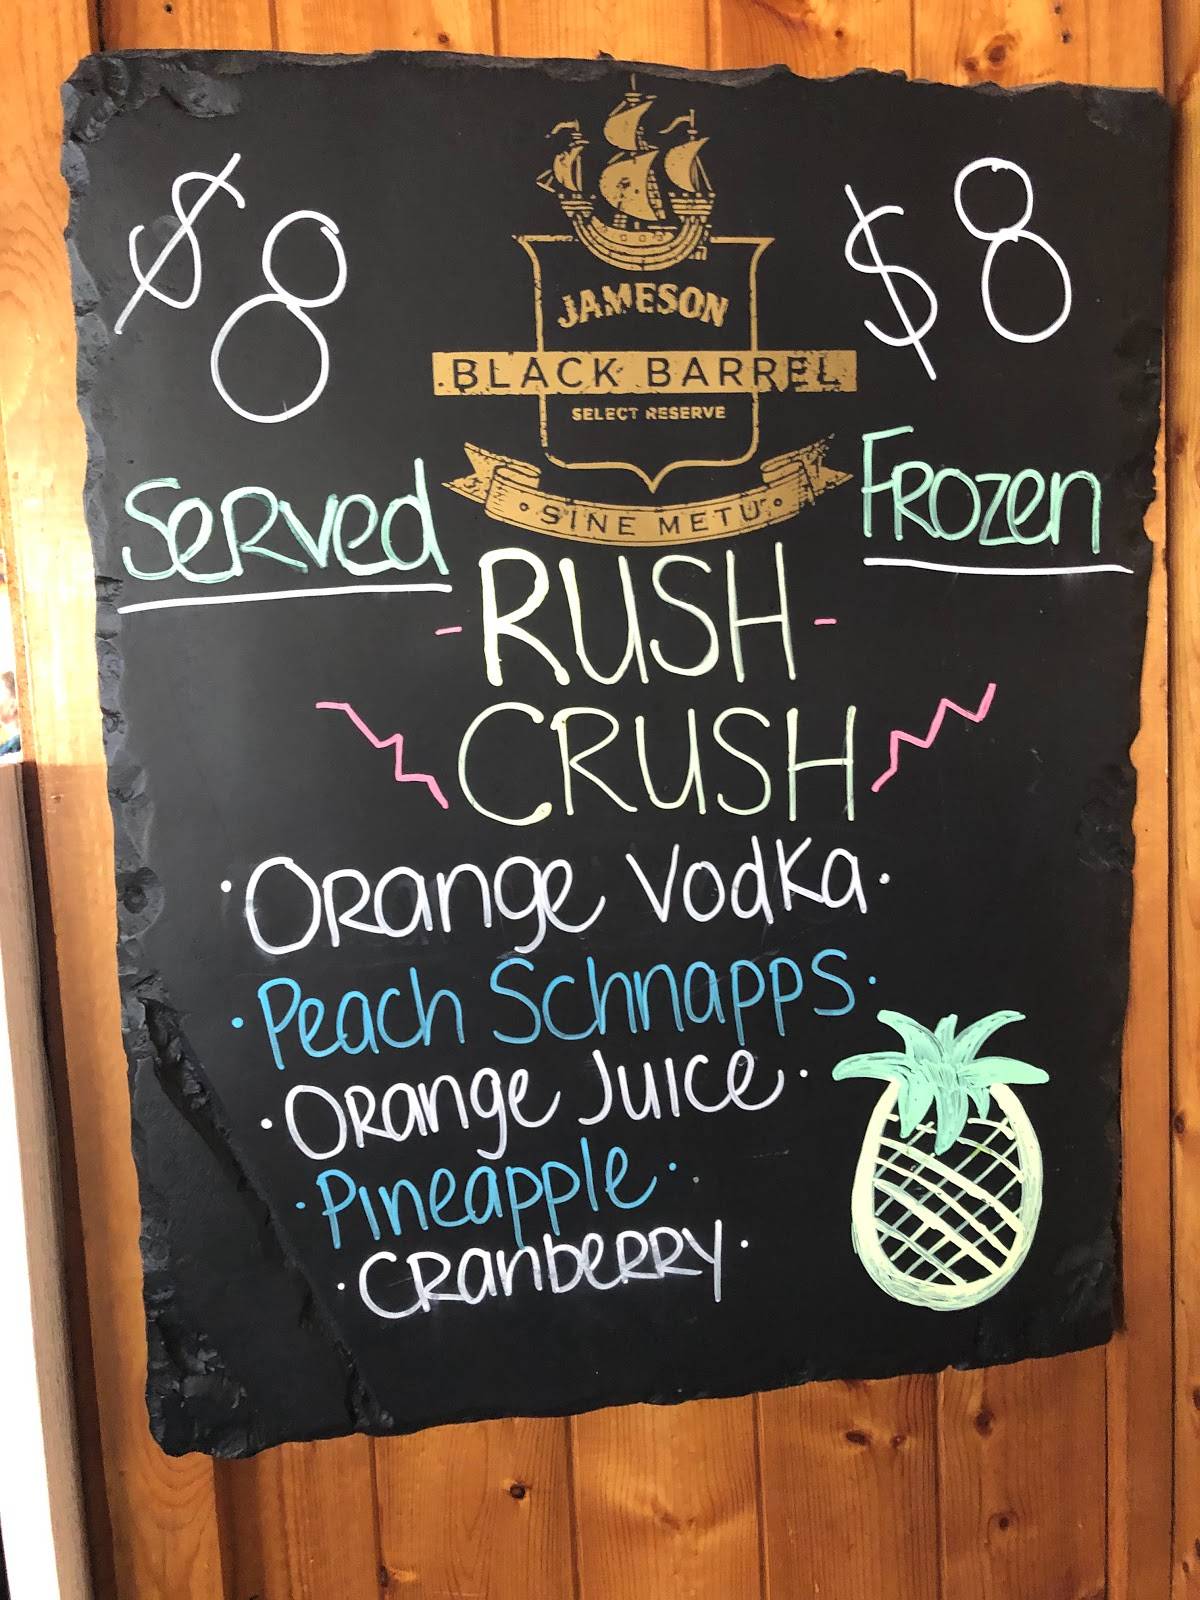 $8 $8
JAMESON
BLACK BARREL
SELECT RESERVE
SINE METU
Served Frozen
-RUSH-
CRUSH
·Orange Vodka·
·Peach Schnapps·
·Orange Juice·
·Pineapple·
·Cranberry·